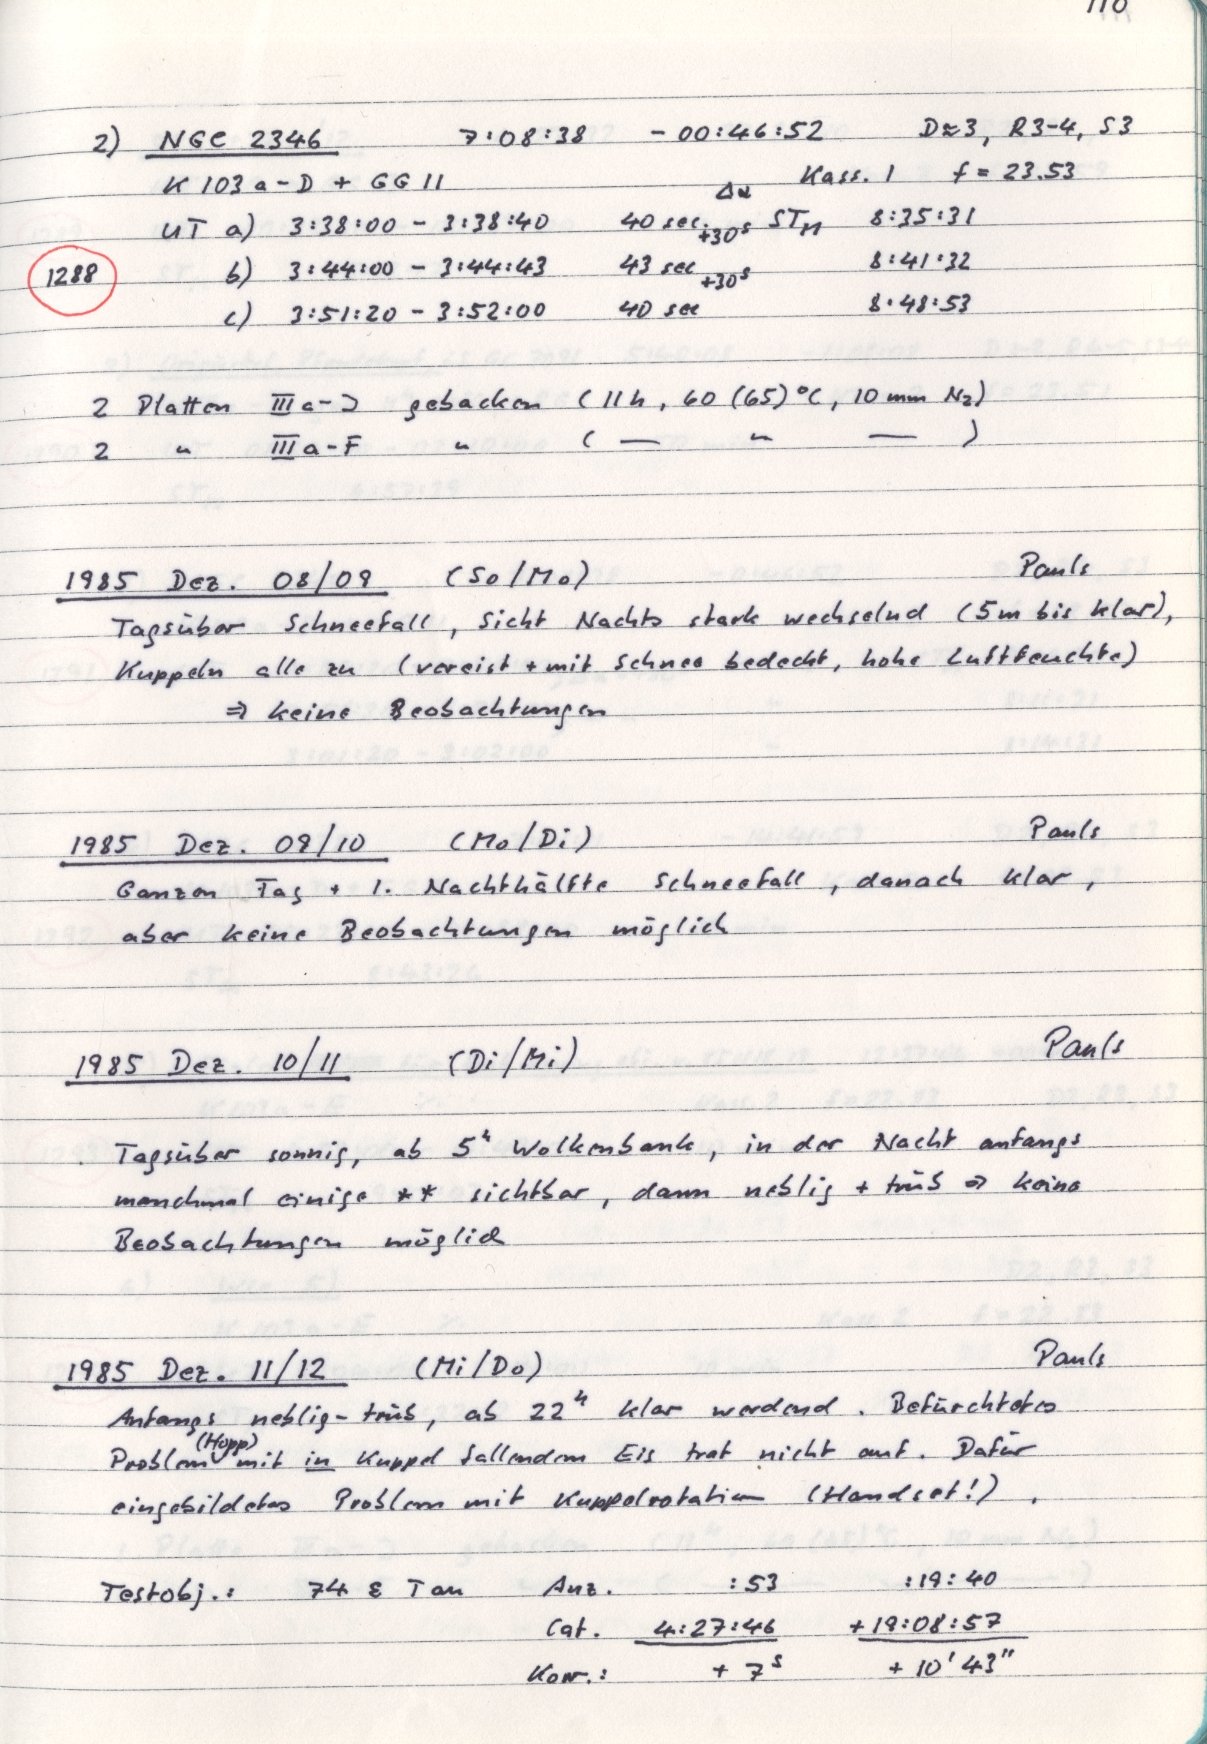 110
2) NGC 2346 7:08:38 - 00:46:52 D≈3, R3-4, S3
K 103a-D + GG 11 Kass. 1 f = 23.53
Δα
UT a) 3:38:00 - 3:38:40 40 sec. +30s STM 8:35:31
1288 b) 3:44:00 - 3:44:43 43 sec +30s 8:41:32
c) 3:51:20 - 3:52:00 40 sec 8:48:53
2 Platten IIIa-J gebacken (11h, 60 (65)°C, 10 mm N2)
2 " IIIa-F " ( — " — )
1985 Dez. 08/09 (So/Mo) Pauls
Tagsüber Schneefall, Sicht Nachts stark wechselnd (5m bis klar),
Kuppeln alle zu (vereist + mit Schnee bedeckt, hohe Luftfeuchte)
⇒ keine Beobachtungen
1985 Dez. 09/10 (Mo/Di) Pauls
Ganzen Tag + 1. Nachthälfte Schneefall, danach klar,
aber keine Beobachtungen möglich
1985 Dez. 10/11 (Di/Mi) Pauls
Tagsüber sonnig, ab 5h Wolkenbank, in der Nacht anfangs
manchmal einige ** sichtbar, dann neblig + trüb ⇒ keine
Beobachtungen möglich
1985 Dez. 11/12 (Mi/Do) Pauls
Anfangs neblig-trüb, ab 22h klar werdend. Befürchtetes
(Hopp)
Problem mit in Kuppel fallendem Eis trat nicht auf. Dafür
eingebildetes Problem mit Kuppelrotation (Handset!).
Testobj.: 74 ε Tau Anz. :53 :19:40
Cat. 4:27:46 +19:08:57
Korr.: + 7s + 10' 43"